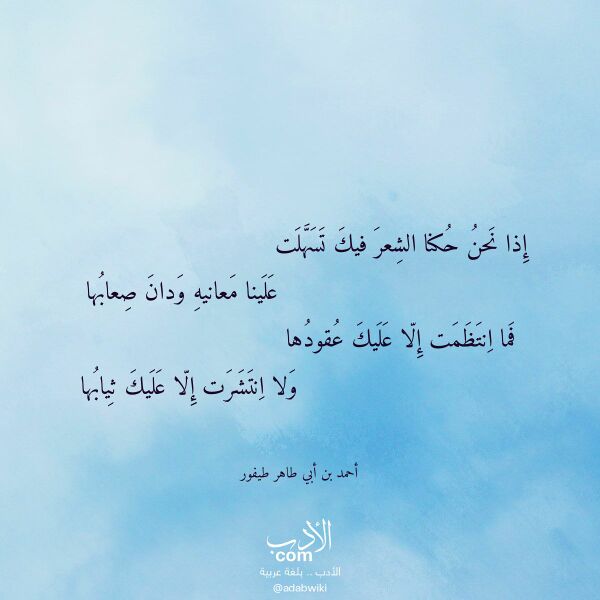 إِذا نَحنُ حُكنا الشِعرَ فيكَ تَسَهَّلَت
عَلَينا مَعانيهِ وَدانَ صِعابُها
فَما اِنتَظَمَت إِلّا عَلَيكَ عُقودُها
وَلا اِنتَشَرَت إِلّا عَلَيكَ ثِيابُها
أحمد بن أبي طاهر طيفور
الأدب
com
الأدب .. بلغة عربية
@adabwiki